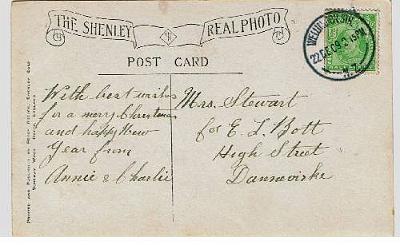 THE SHENLEY REAL PHOTO
POST CARD
22 DE 09
N.Z.
With best wishes
for a merry Christmas
and happy New
Year from
Annie & Charlie
Mrs. Stewart
c/o E. L. Bott
High Street
Dannevirke